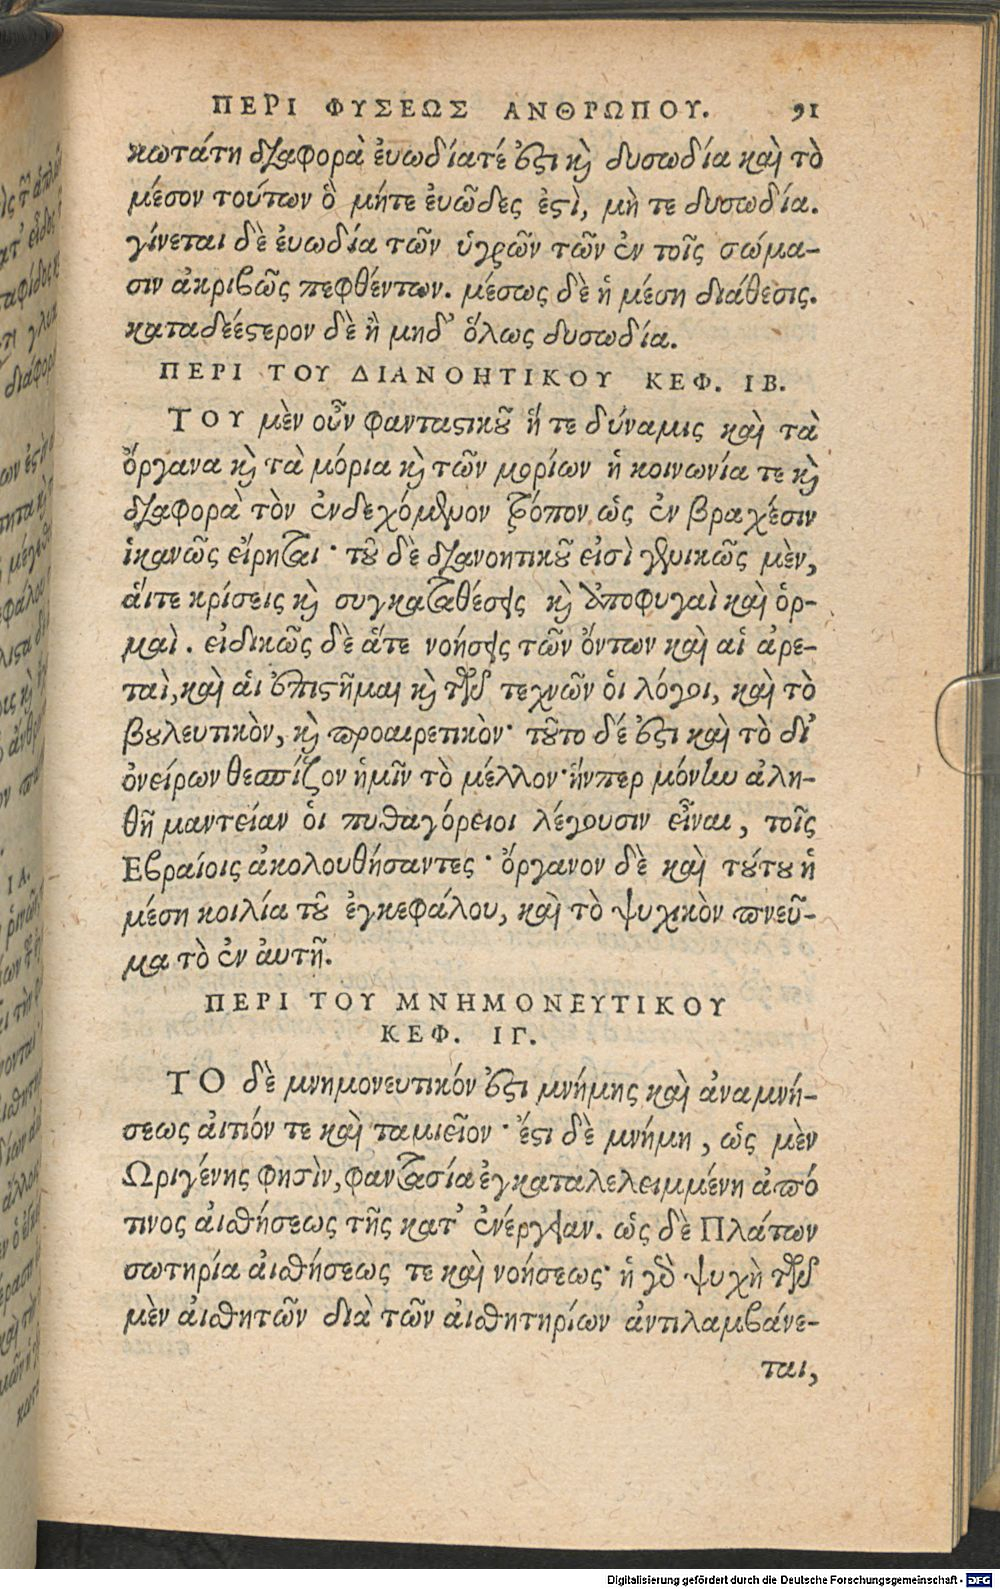 ΠΕΡΙ ΦΥΣΕΩΣ ΑΝΘΡΩΠΟΥ. 91
κωτάτη διαφορὰ ἐυωδίατέ ἐστι καὶ δυσωδία καὶ τὸ
μέσον τούτων ὃ μήτε ἐυῶδες ἐστὶ, μὴ τε δυσωδία.
γίνεται δὲ ἐυωδία τῶν ὑγρῶν τῶν ἐν τοῖς σώμα-
σιν ἀκριβῶς πεφθέντων. μέσως δὲ ἡ μέση διάθεσις.
καταδεέστερον δὲ ἢ μηδ' ὅλως δυσωδία.
ΠΕΡΙ ΤΟΥ ΔΙΑΝΟΗΤΙΚΟΥ ΚΕΦ. ΙΒ.
ΤΟΥ μὲν οὖν φανταστικοῦ ἥ τε δύναμις καὶ τὰ
ὄργανα καὶ τὰ μόρια καὶ τῶν μορίων ἡ κοινωνία τε καὶ
διαφορὰ τὸν ἐνδεχόμενον τρόπον ὡς ἐν βραχέσιν
ἱκανῶς εἴρηται· τοῦ δὲ διανοητικοῦ εἰσὶ γενικῶς μὲν,
ἅιτε κρίσεις καὶ συγκαταθέσεις καὶ ἀποφυγαὶ καὶ ὁρ-
μαὶ. εἰδικῶς δὲ ἅτε νοήσεις τῶν ὄντων καὶ αἱ ἀρε-
ταὶ, καὶ ἁι ἐπιστῆμαι καὶ τῶν τεχνῶν ὁι λόγοι, καὶ τὸ
βουλευτικὸν, καὶ προαιρετικὸν· τοῦτο δέ ἐστι καὶ τὸ δι'
ὀνείρων θεσπίζον ἡμῖν τὸ μέλλον· ἥνπερ μόνην ἀλη-
θῆ μαντείαν ὁι πυθαγόρειοι λέγουσιν εἶναι, τοῖς
Εβραίοις ἀκολουθήσαντες· ὄργανον δὲ καὶ τούτου ἡ
μέση κοιλία τοῦ ἐγκεφάλου, καὶ τὸ ψυχικὸν πνεῦ-
μα τὸ ἐν ἀυτῇ.
ΠΕΡΙ ΤΟΥ ΜΝΗΜΟΝΕΥΤΙΚΟΥ
ΚΕΦ. ΙΓ.
ΤΟ δὲ μνημονευτικόν ἐστι μνήμης καὶ ἀναμνή-
σεως ἀιτιόν τε καὶ ταμιεῖον· ἔστι δὲ μνήμη, ὡς μὲν
Ωριγένης φησὶν, φαντασία ἐγκαταλελειμμένη ἀπό
τινος ἀισθήσεως τῆς κατ' ἐνέργειαν. ὡς δὲ Πλάτων
σωτηρία ἀισθήσεως τε καὶ νοήσεως· ἡ γὰρ ψυχὴ τῶν
μὲν ἀισθητῶν διὰ τῶν ἀισθητηρίων ἀντιλαμβάνε-
ται,
Digitalisierung gefördert durch die Deutsche Forschungsgemeinschaft - DFG